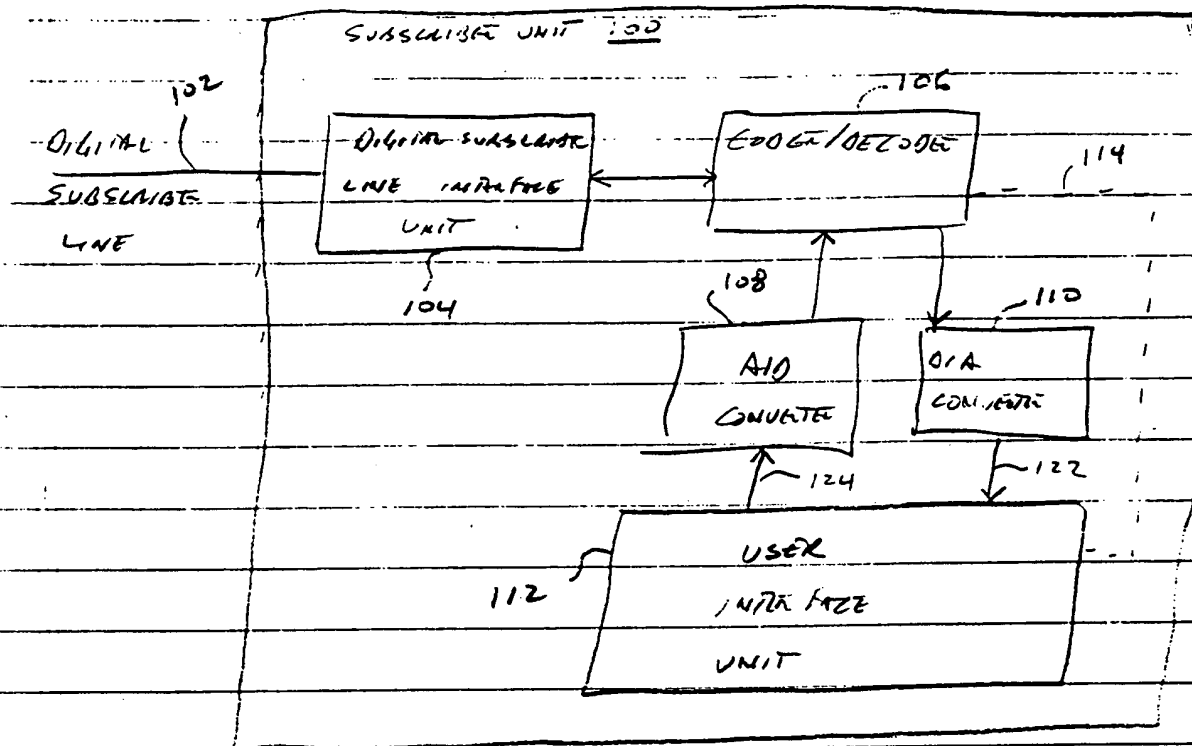 SUBSCRIBER UNIT 100
102
106
DIGITAL
SUBSCRIBE
LINE
DIGITAL SUBSCRIBER
LINE INTERFACE
UNIT
104
CODER/DECODER
114
108
A/D
CONVERTER
110
D/A
CONVERTER
124
122
112
USER
INTERFACE
UNIT